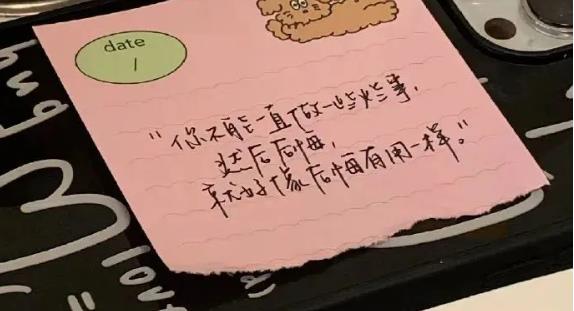 date
/
"你不能一直做一些烂事，
然后后悔，
就好像后悔有用一样。"
hug
love
=